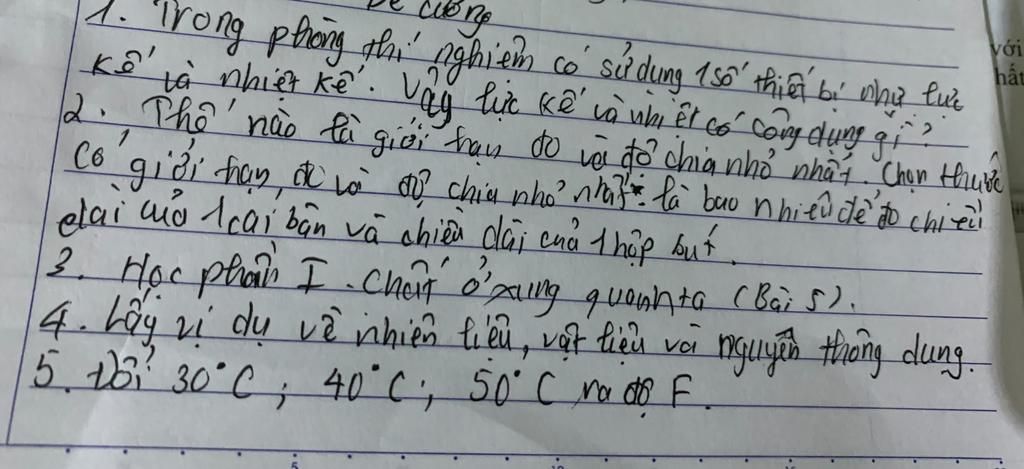 Đề cương
1. Trong phòng thí nghiệm có sử dụng 1 số thiết bị như lực
kế là nhiệt kế. Vậy lực kế và nhiệt có công dụng gì?
2. Thế nào là giới hạn đo và độ chia nhỏ nhất. Chọn thước
có giới hạn, đo và độ chia nhỏ nhất là bao nhiêu để đo chiều
dài của 1 cái bàn và chiều dài của 1 hộp bút.
3. Học phần I. Chất ở xung quanh ta (Bài 5).
4. Lấy ví dụ về nhiên liệu, vật liệu và nguyên thông dụng.
5. Đổi 30°C; 40°C; 50°C ra độ F.
với
hất